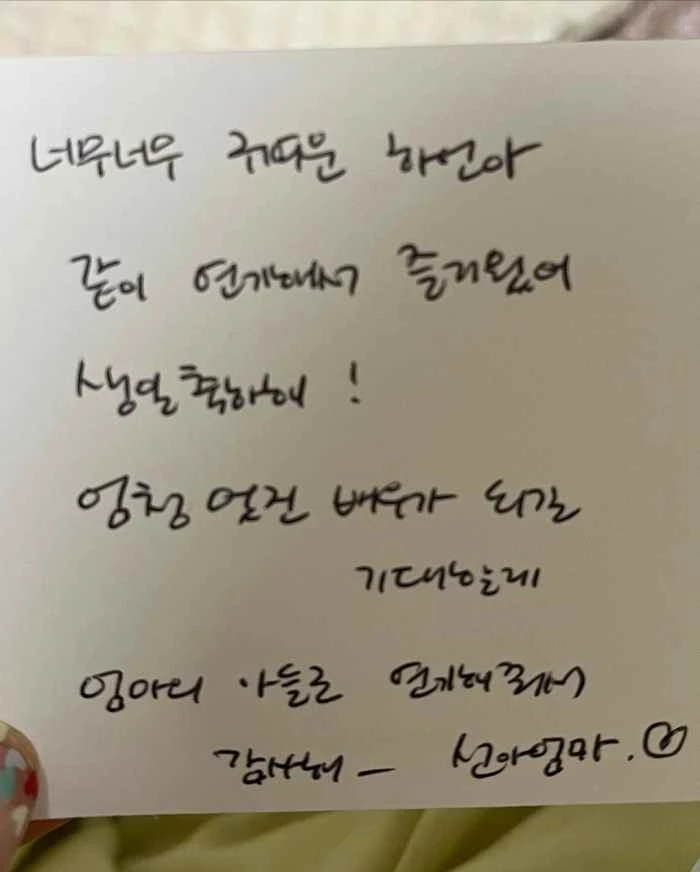 너무너무 귀여운 하언아
같이 연기해서 즐거웠어
생일축하해 !
엄청 멋진 배우가 되길
기대하는데
엄마의 아들로 연기해줘서
감사해 – 선아엄마. ♡